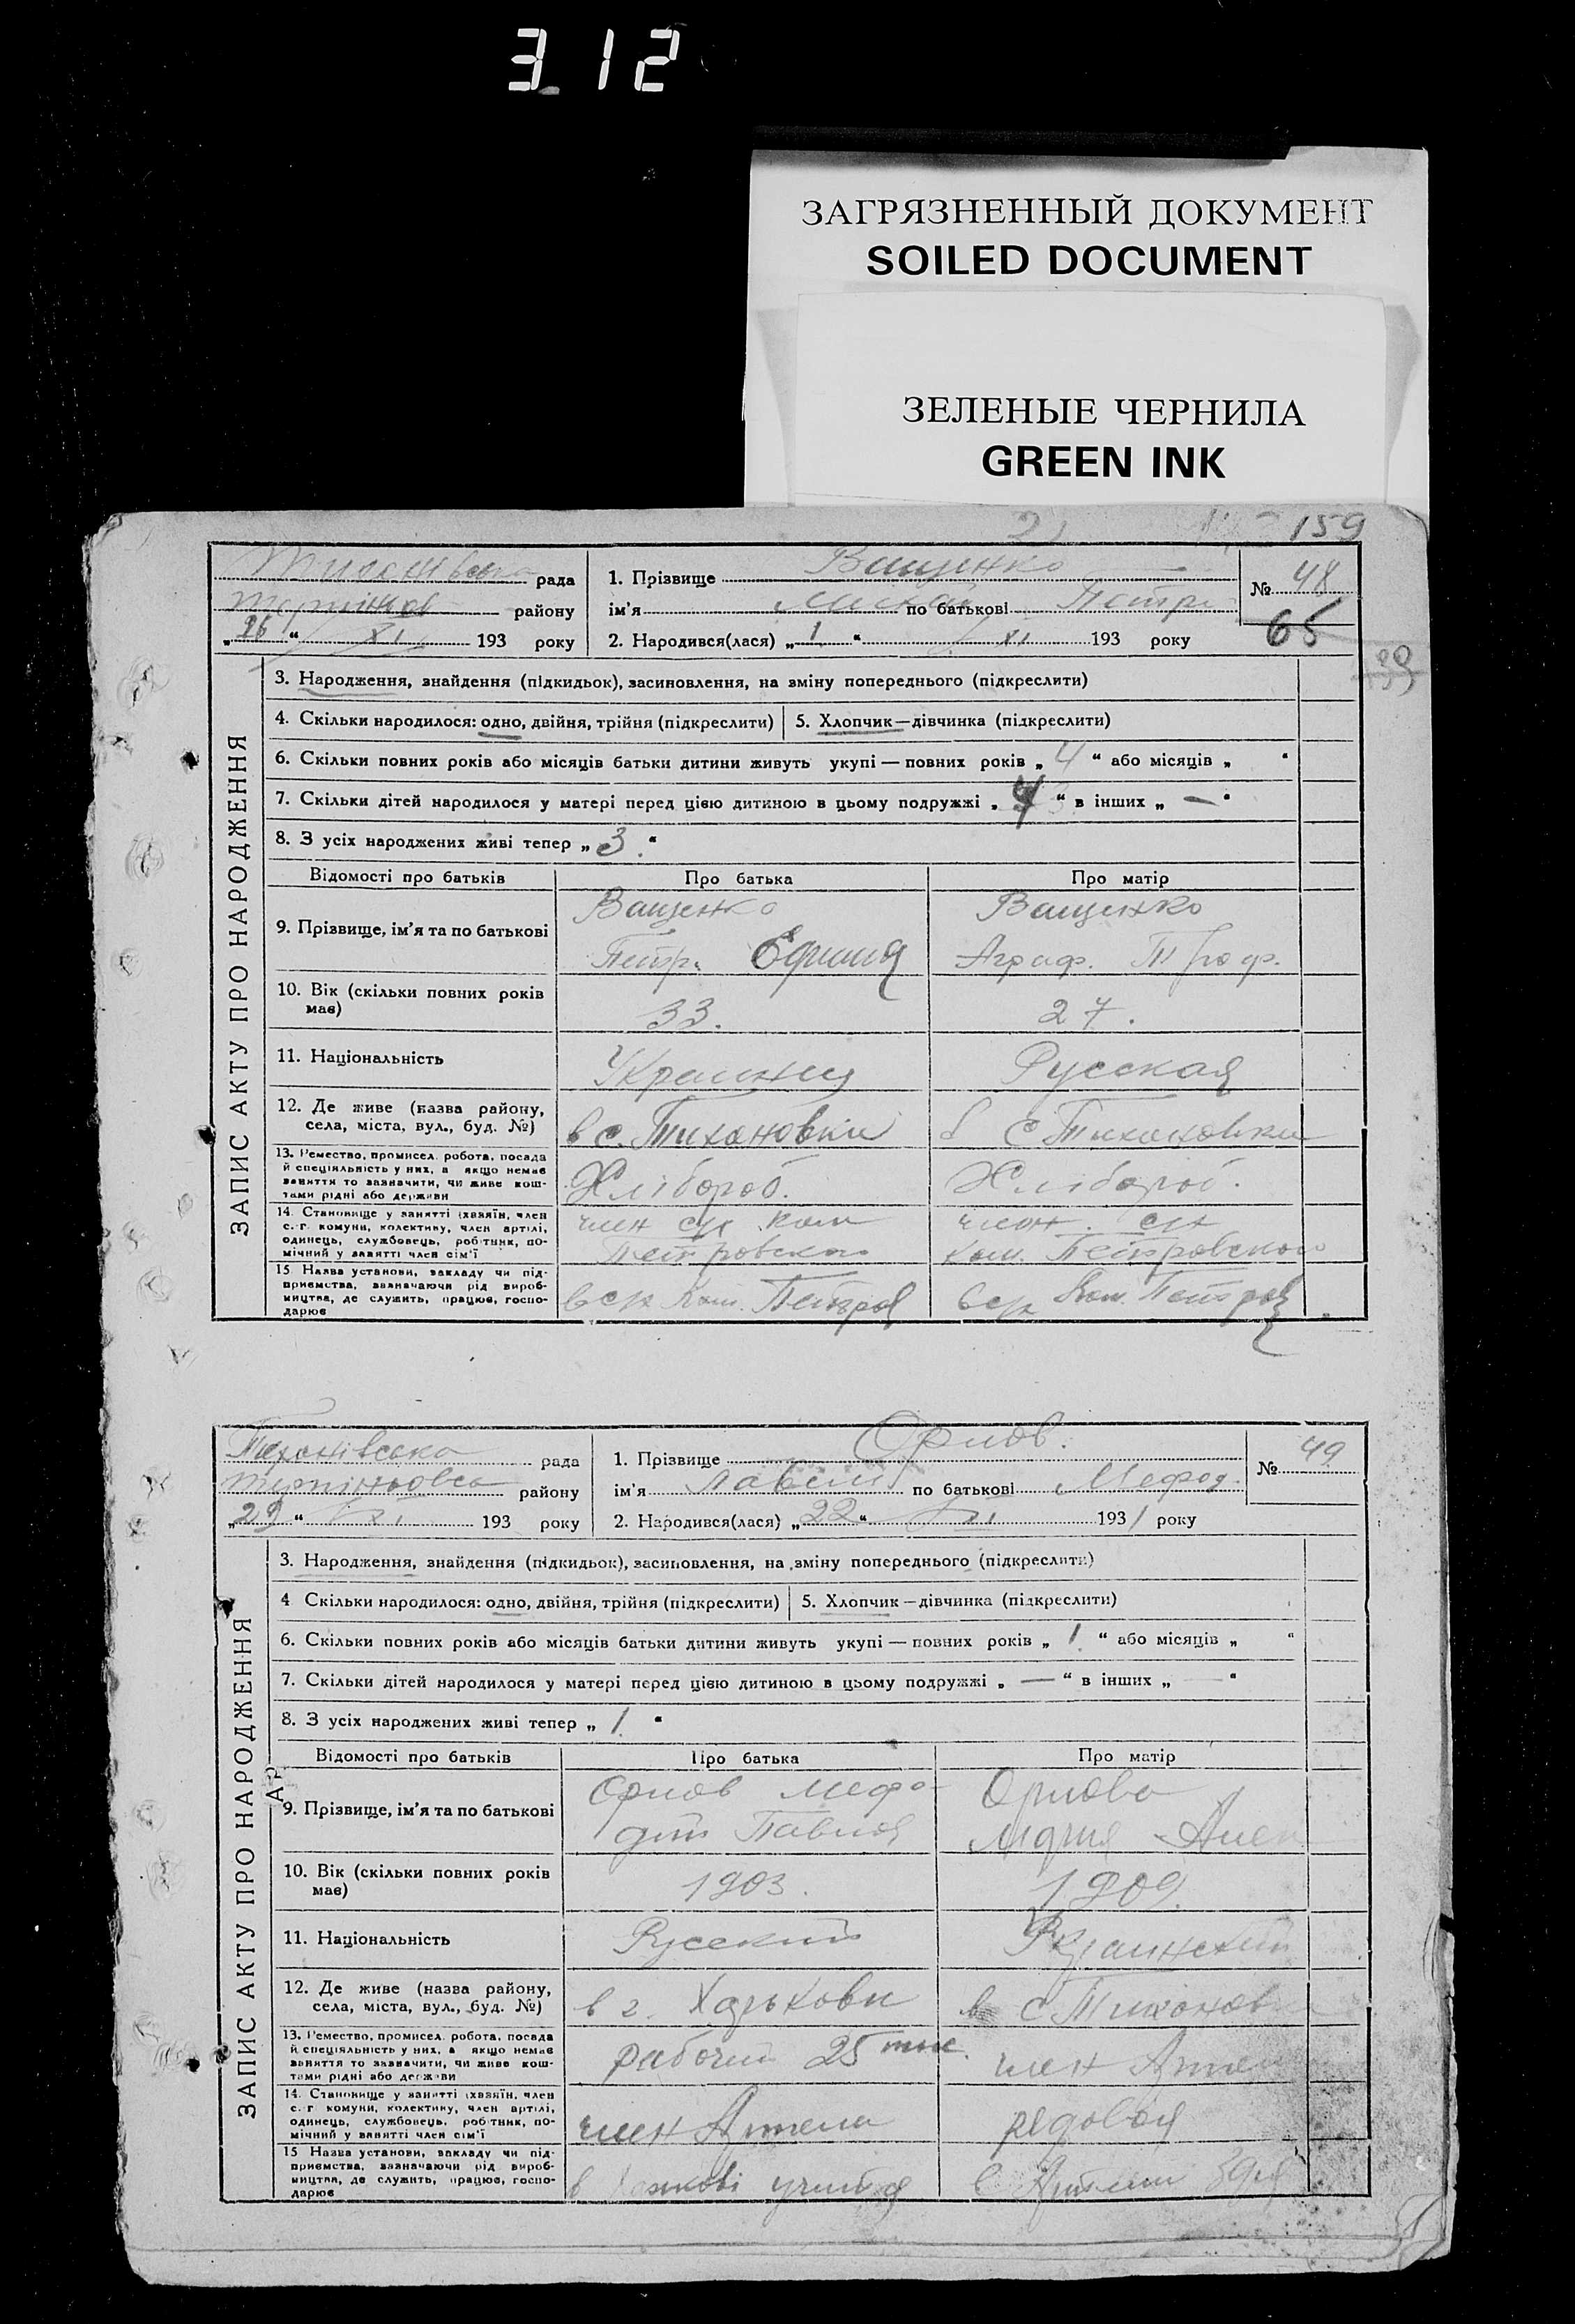 3_12
ЗАГРЯЗНЕННЫЙ ДОКУМЕНТ
SOILED DOCUMENT
ЗЕЛЕНЫЕ ЧЕРНИЛА
GREEN INK
159
рада
району
„26“ XI 193 року
1. Прізвище Ващенко
ім'я по батькові Петр.
2. Народився(лася) „1“ XI 193 року
№ 48
65
39
ЗАПИС АКТУ ПРО НАРОДЖЕННЯ
3. Народження, знайдення (підкидьок), засиновлення, на зміну попереднього (підкреслити)
4. Скільки народилося: одно, двійня, трійня (підкреслити) 5. Хлопчик—дівчинка (підкреслити)
6. Скільки повних років або місяців батьки дитини живуть укупі — повних років „4“ або місяців „ “
7. Скільки дітей народилося у матері перед цією дитиною в цьому подружжі „ “ в інших „—“
8. З усіх народжених живі тепер „3“
Відомості про батьків Про батька Про матір
9. Прізвище, ім'я та по батькові
Ващенко
Петр. Ефимия
Ващенко
Аграф. Троф.
10. Вік (скільки повних років має) 33. 27.
11. Національність Украинец Русская
12. Де живе (назва району,
села, міста, вул., буд. №)
в с. Тихановки в с Тихановки
13. Ремество, промисел, робота, посада
й спеціяльність у них, а якщо немає
заняття то зазначити, чи живе кош-
тами рідні або держави
Хлібороб. Хлібороб.
14. Становище у занятті (хазяїн, член
с.-г. комуни, колективу, член артілі,
одинець, службовець, робітник, по-
мічний у занятті член сім'ї
член с/х ком
Петровского
член. с/х
ком. Петровского
15 Назва установи, закладу чи під-
приємства, зазначаючи рід вироб-
ництва, де служить, працює, госпо-
дарює
в с/х Ком. Петров в с/х Ком. Петров
Тиханівська рада
району
„29“ XI 193 року
1. Прізвище Орлов.
ім'я Павел по батькові Мефод.
2. Народився(лася) „22“ XI 1931 року
№ 49
ЗАПИС АКТУ ПРО НАРОДЖЕННЯ
3. Народження, знайдення (підкидьок), засиновлення, на зміну попереднього (підкреслити)
4 Скільки народилося: одно, двійня, трійня (підкреслити) 5. Хлопчик—дівчинка (підкреслити)
6. Скільки повних років або місяців батьки дитини живуть укупі — повних років „1“ або місяців „ “
7. Скільки дітей народилося у матері перед цією дитиною в цьому подружжі „—“ в інших „—“
8. З усіх народжених живі тепер „1“
Відомості про батьків Про батька Про матір
9. Прізвище, ім'я та по батькові
Орлов Мефо-
дий Павлов
Орлова
Мария Алек
10. Вік (скільки повних років має) 1903. 1909.
11. Національність Русский
12. Де живе (назва району,
села, міста, вул., буд. №)
в г. Харькови в с Тиханов
13. Ремество, промисел, робота, посада
й спеціяльність у них, а якщо немає
заняття то зазначити, чи живе кош-
тами рідні або держави
рабочий 25 тыс. член Артел
14. Становище у занятті (хазяїн, член
с.-г. комуни, колективу, член артілі,
одинець, службовець, робітник, по-
мічний у занятті член сім'ї
член Артели редовая
15 Назва установи, закладу чи під-
приємства, зазначаючи рід вироб-
ництва, де служить, працює, госпо-
дарює
в учится в Артели